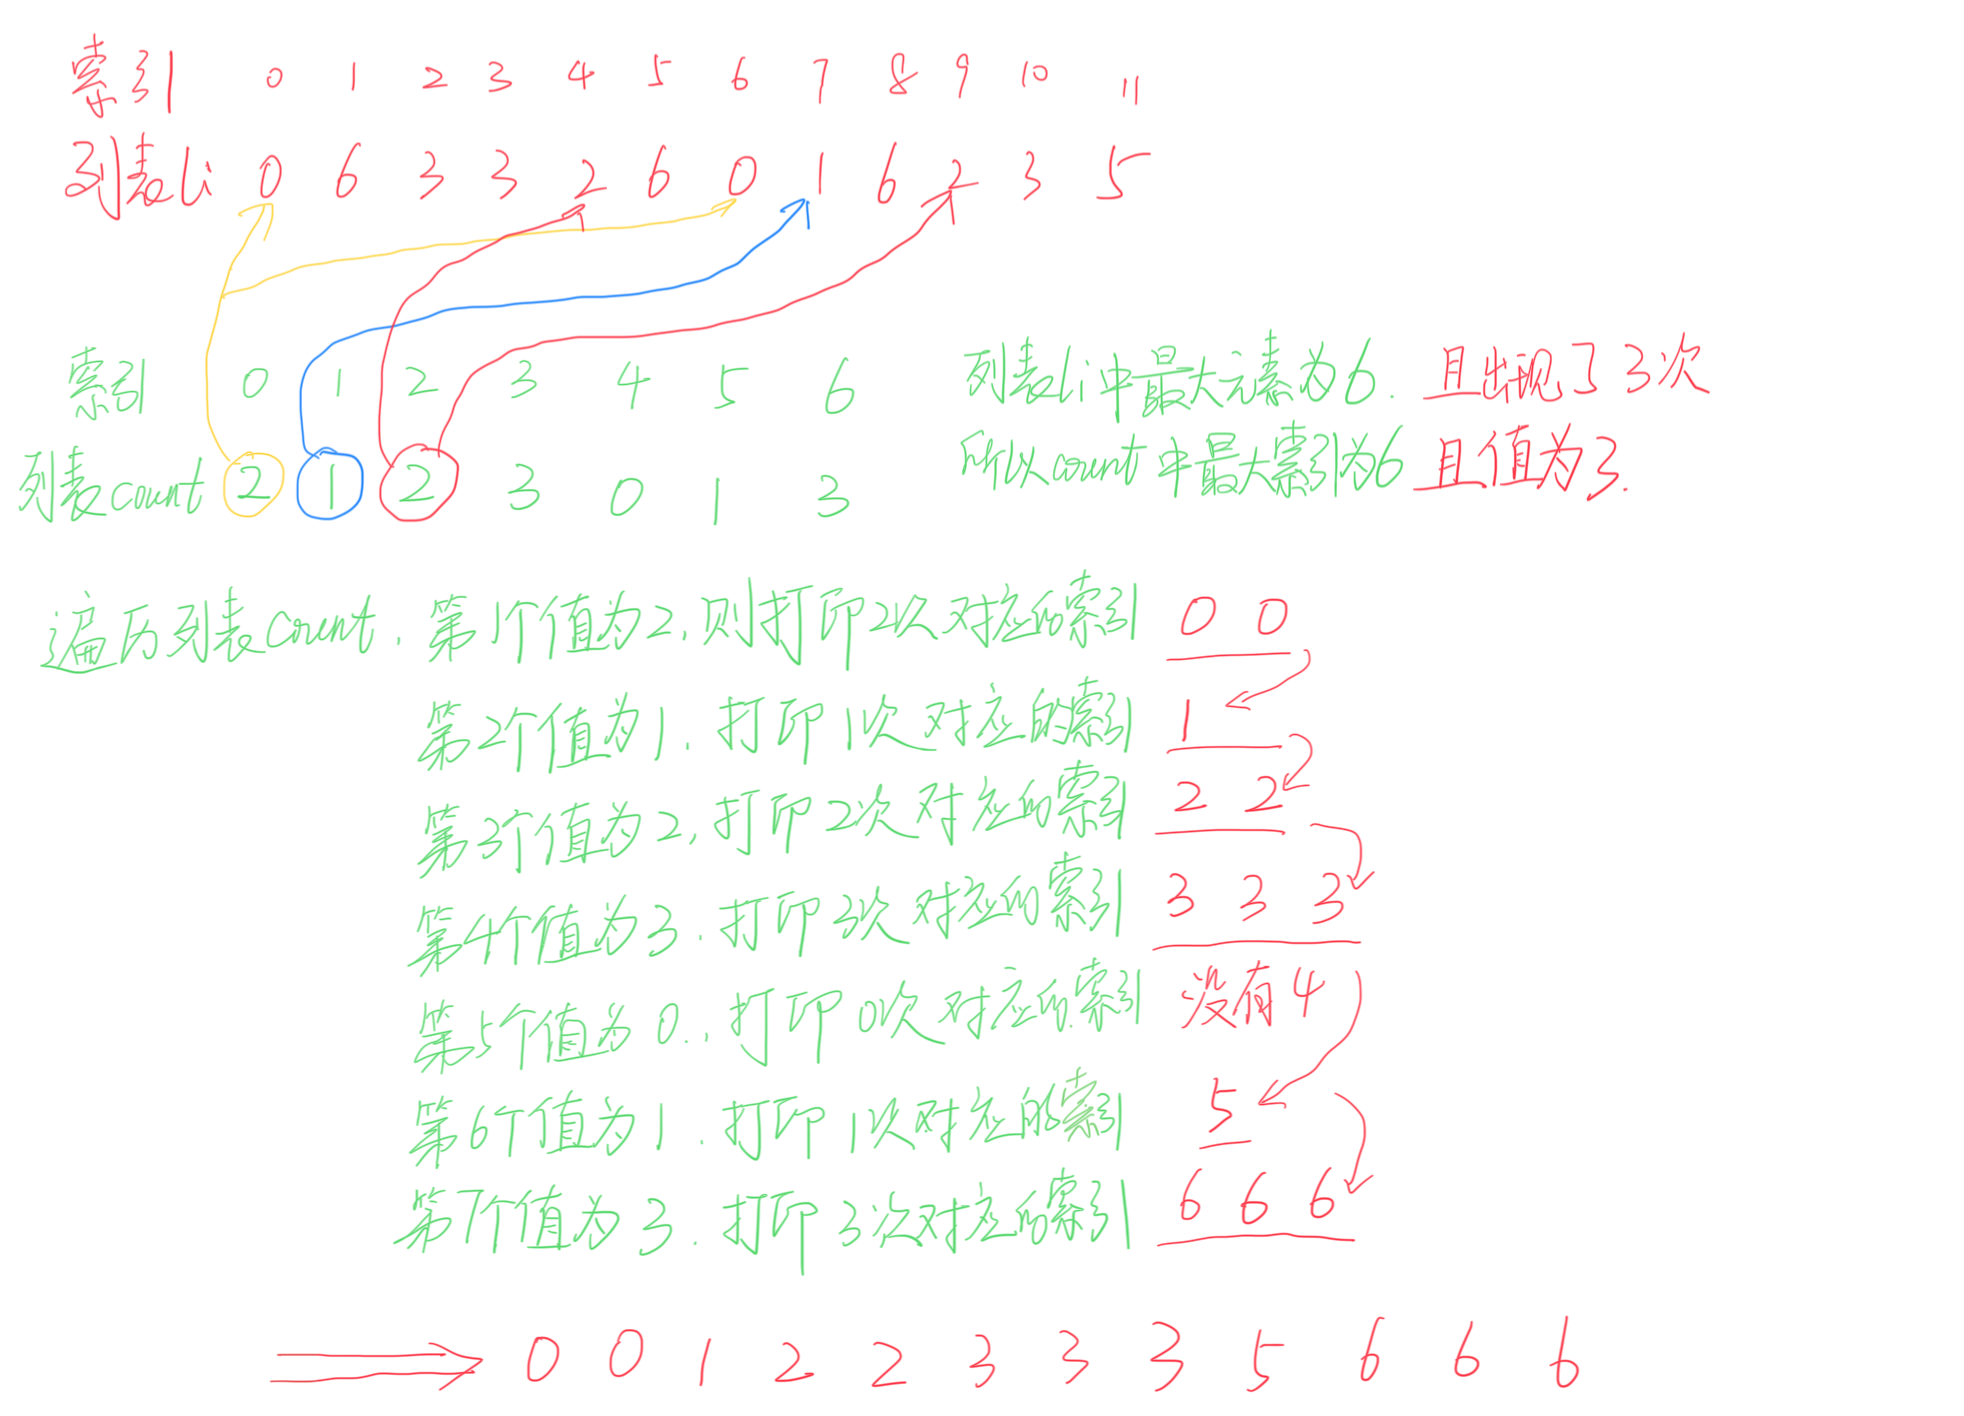 索引 0 1 2 3 4 5 6 7 8 9 10 11
列表li 0 6 3 3 2 6 0 1 6 2 3 5
索引 0 1 2 3 4 5 6 列表li中最大元素为6. 且出现了3次
列表count 2 1 2 3 0 1 3 所以count中最大索引为6 且值为3.
遍历列表count, 第1个值为2, 则打印2次对应的索引 0 0
第2个值为1. 打印1次对应的索引 1
第3个值为2, 打印2次对应的索引 2 2
第4个值为3. 打印3次对应的索引 3 3 3
第5个值为0., 打印0次对应的索引 没有4
第6个值为1. 打印1次对应的索引 5
第7个值为3. 打印3次对应的索引 6 6 6
0 0 1 2 2 3 3 3 5 6 6 6